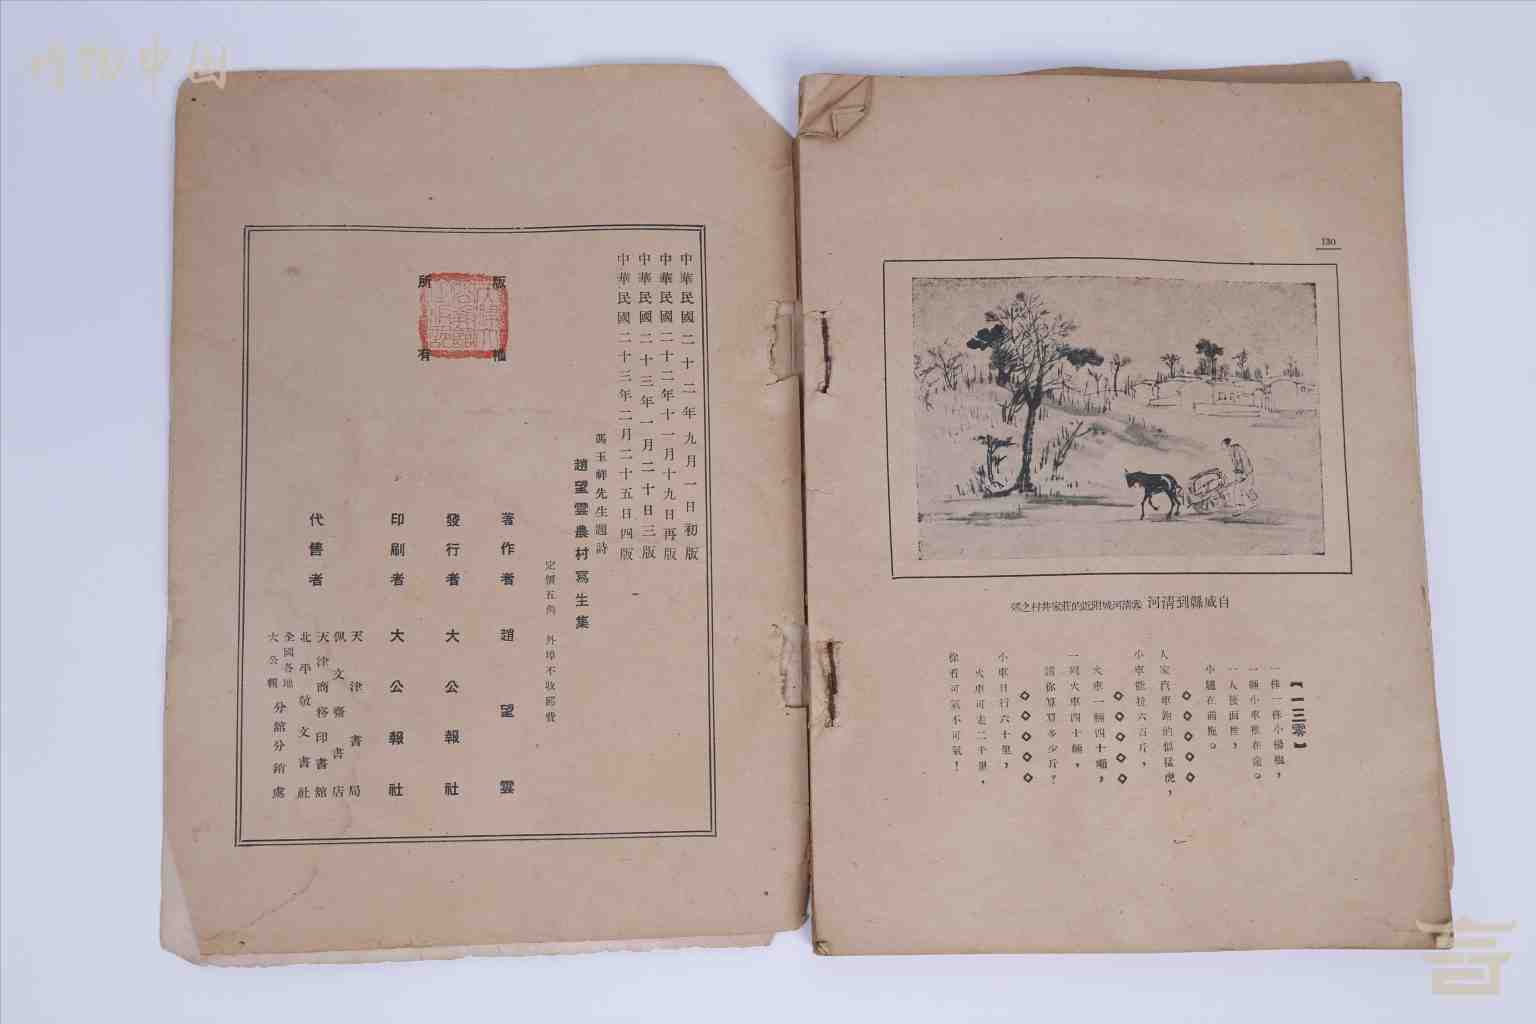 130
自威縣到清河 表清河城附近的莊家井村之郊
【一三零】
一株一株小楊樹，
一輛小車推在途。
一人後面推，
小驢在前拖。
◇◇◇◇◇
人家汽車跑的似猛虎，
小車能拉六百斤，
◇◇◇◇◇
火車一輛四十噸，
一列火車四十輛，
請你算算多少斤？
◇◇◇◇◇
小車日行六十里，
火車可走二千里，
你看可氣不可氣！
中華民國二十二年九月一日初版
中華民國二十二年十一月十九日再版
中華民國二十三年一月二十日三版
中華民國二十三年二月二十五日四版
馮玉祥先生題詩
趙望雲農村寫生集
定價五角 外埠不收郵費
版權所有
著作者 趙望雲
發行者 大公報社
印刷者 大公報社
代售者
天津書局
佩文齋書店
天津商務印書館
北平敬文書社
全國各地大公報分館分銷處
博物中国